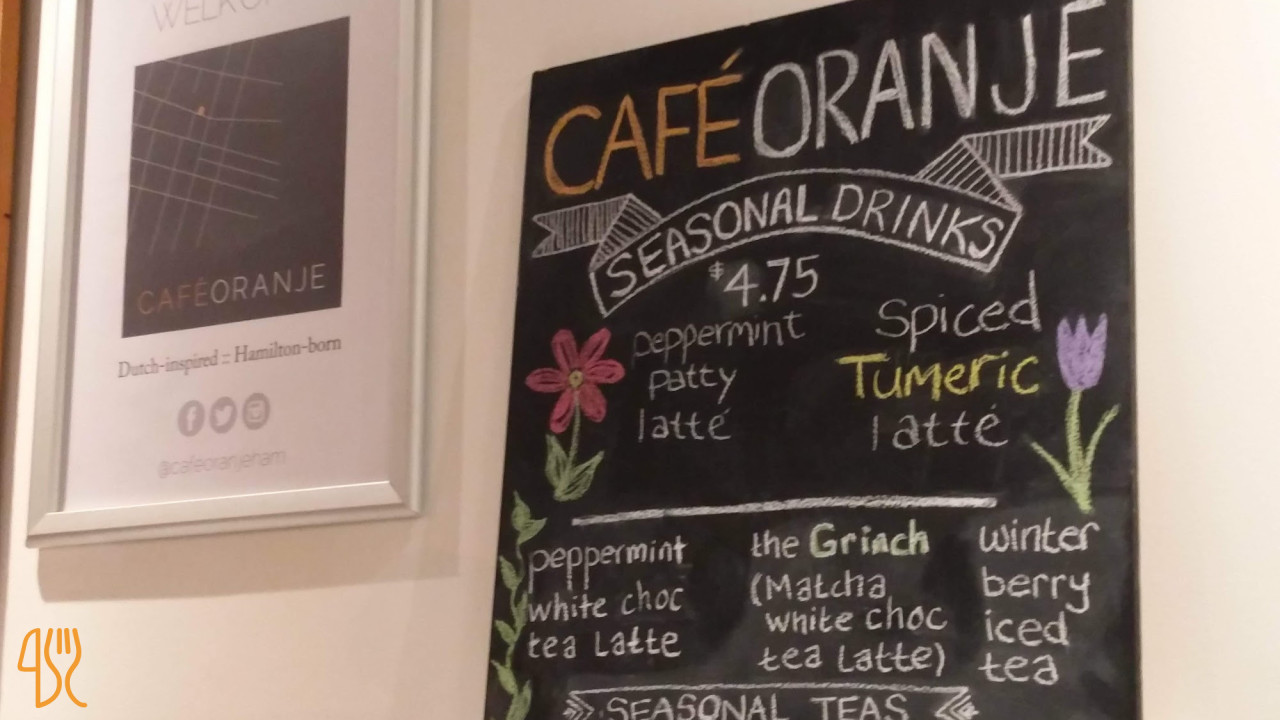 WELKOM
CAFÉORANJE
Dutch-inspired :: Hamilton-born
@cafeoranjeham
CAFÉ ORANJE
SEASONAL DRINKS
$4.75
peppermint
patty
latté
Spiced
Tumeric
latté
peppermint
white choc
tea Latte
the Grinch
(Matcha
white choc
tea latte)
winter
berry
iced
tea
SEASONAL TEAS